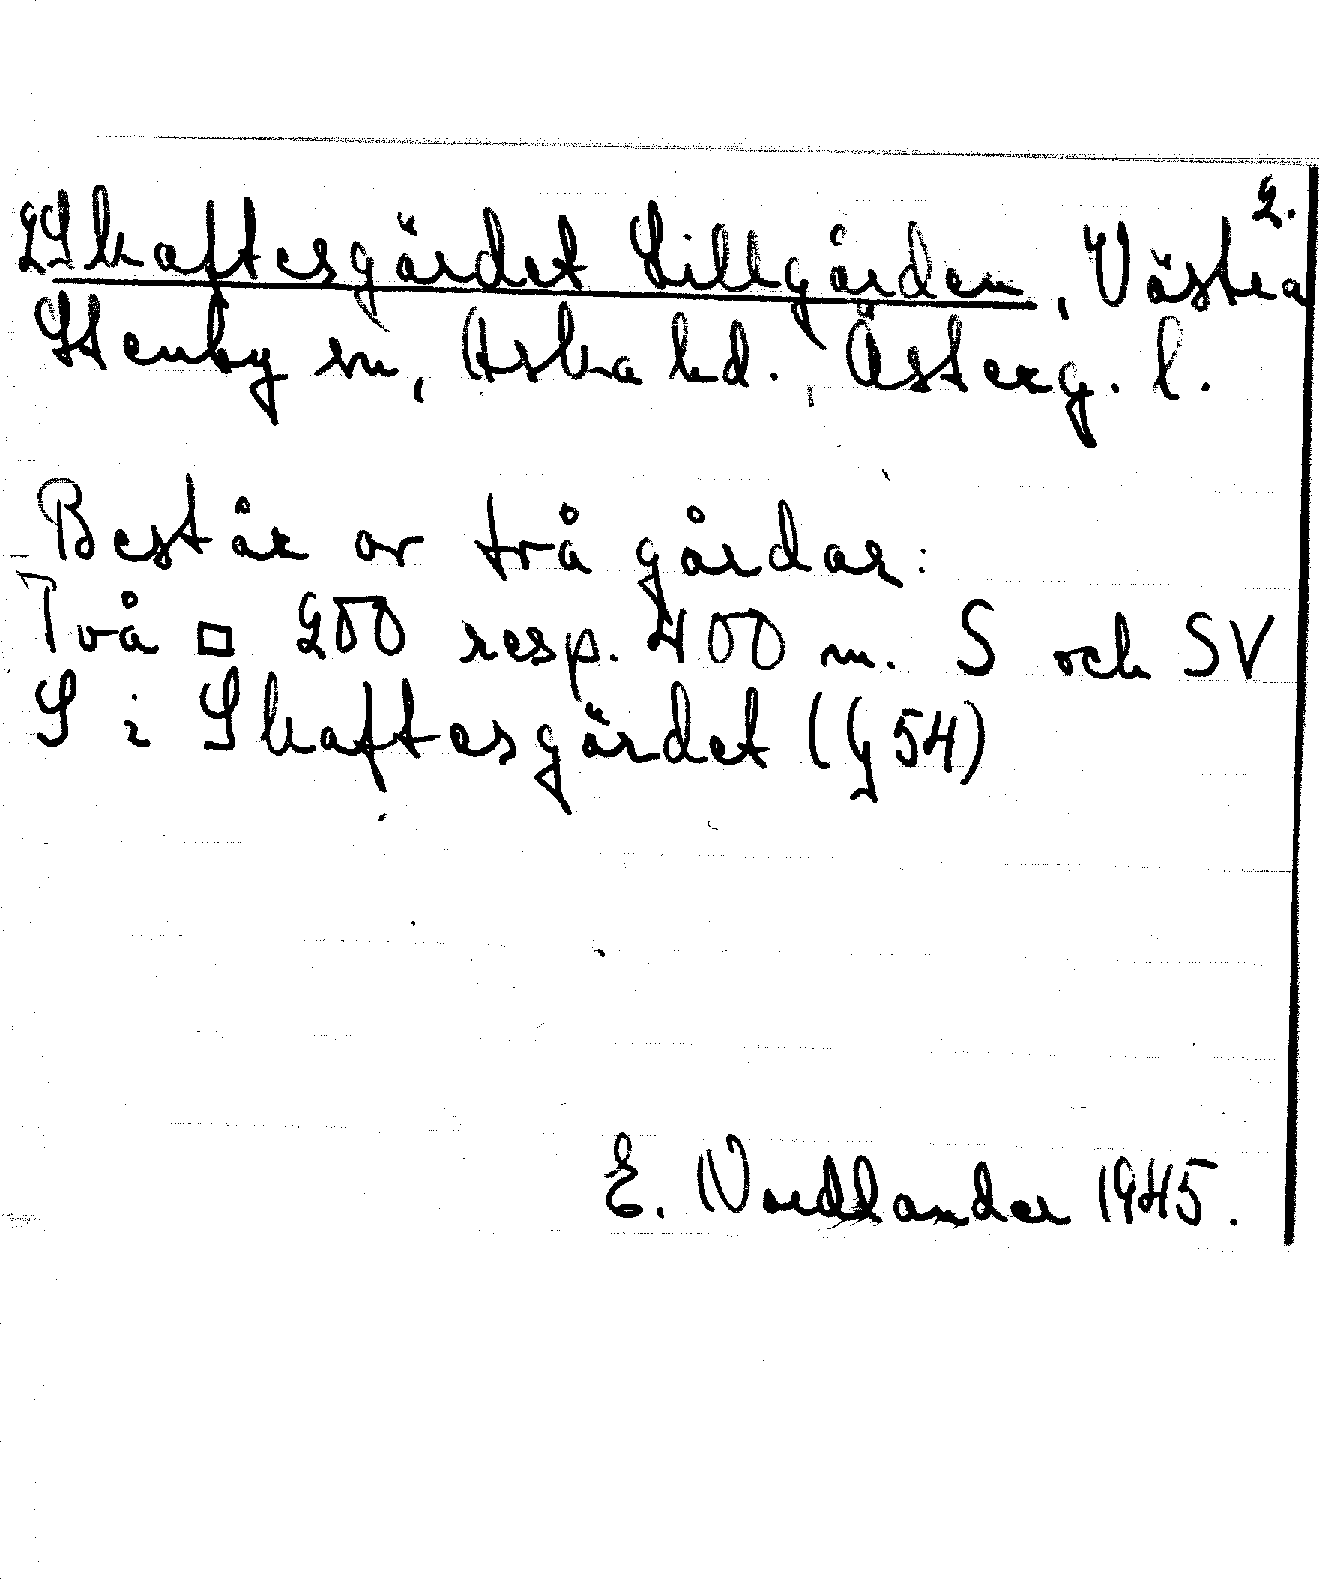 2.
2 Skaftesgärdet Lillgården, Västra
Stenby sn, Aska hd. Österg. l.
Består av två gårdar:
Två □ 200 resp. 400 m. S och SV
S i Skaftesgärdet (G 54)
E. Nordlander 1945.